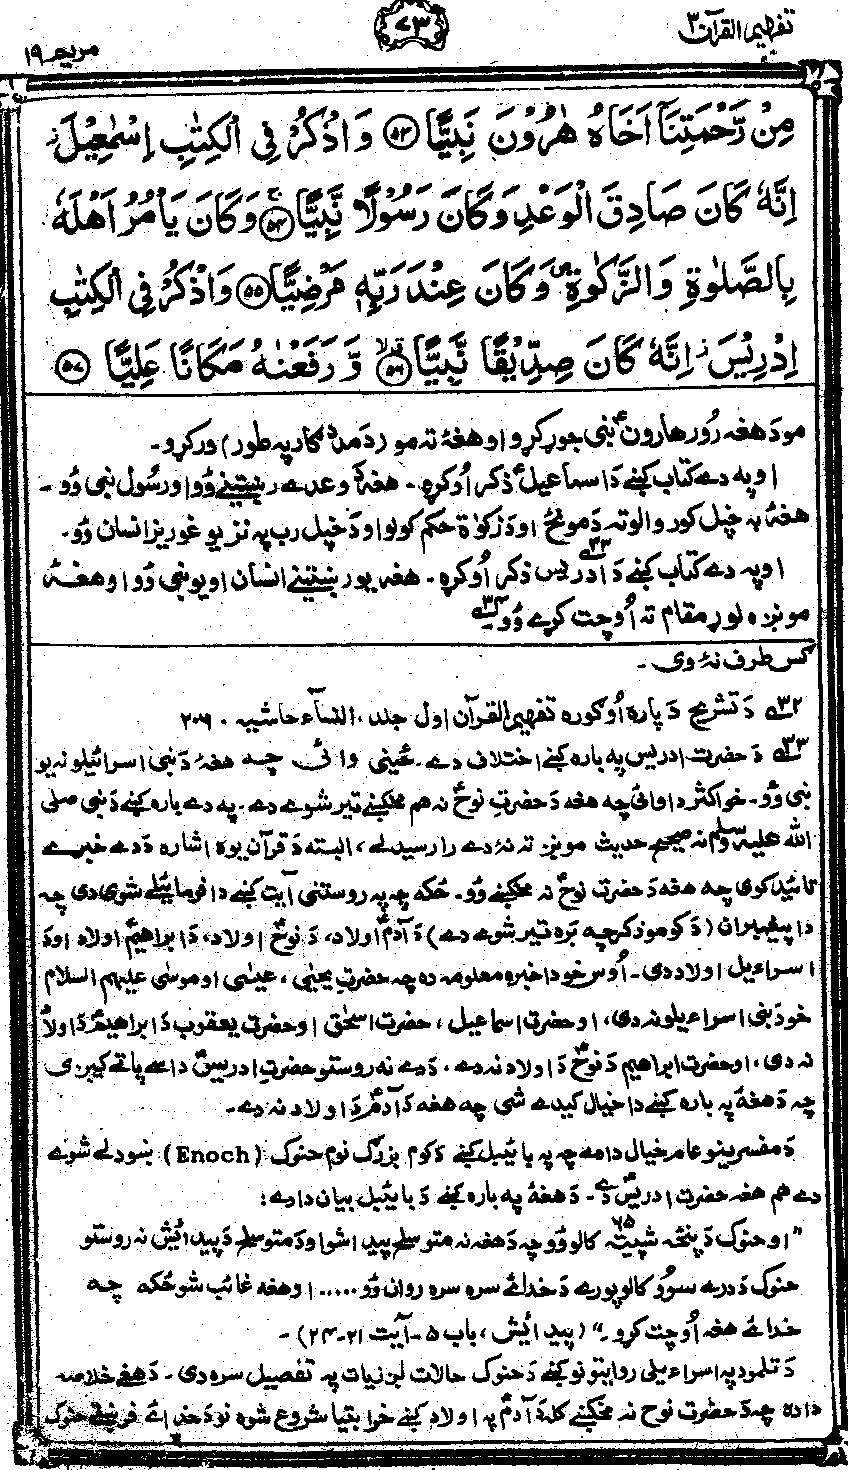 تفهیم القرآن ۳
۷۳
مریم ۱۹
مِنْ رَّحْمَتِنَآ اَخَاهُ هٰرُوْنَ نَبِيًّا ﴿۵۳﴾ وَاذْكُرْ فِى الْكِتٰبِ اِسْمٰعِيْلَ ز
اِنَّهٗ كَانَ صَادِقَ الْوَعْدِ وَكَانَ رَسُوْلًا نَّبِيًّا ﴿۵۴﴾ ج وَكَانَ يَاْمُرُ اَهْلَهٗ
بِالصَّلٰوةِ وَالزَّكٰوةِ ص وَكَانَ عِنْدَ رَبِّهٖ مَرْضِيًّا ﴿۵۵﴾ وَاذْكُرْ فِى الْكِتٰبِ
اِدْرِيْسَ ز اِنَّهٗ كَانَ صِدِّيْقًا نَّبِيًّا ﴿۵۶﴾ وَّرَفَعْنٰهُ مَكَانًا عَلِيًّا ﴿۵۷﴾
مو د هغه رور هارونؑ نبی جوړ کړو او هغهٔ ته مو (د مدد ګار په طور) ورکړو۔
او په دے کتاب کښے د اسماعیلؑ ذکر اُوکړه۔ هغهٔ د وعدے رښتینے وُو او رسُول نبی وُو۔
هغهٔ به خپل کور والو ته د مونځ او د زکوٰة حکم کولو او د خپل رب په نزد یو غوریز انسان وُو۔
او په دے کتاب کښے د ادریس ذکر اُوکړه۔ هغه یو رښتینے انسان او یو نبی وُو او هغهٔ ۳۳
مونږه لوړ مقام ته اُوچت کړے وُو ۳۴
کس طرف نهٔ وی۔
۳۲ د تشریح د پاره اُوګوره تفهیم القرآن اول جلد، النسآء حاشیه ۲۰۶۔
۳۳ د حضرت ادریس په باره کښے اختلاف دے۔ ځینی وائی چه هغهٔ د بنی اسرائیلو نه یو
نبی وُو۔ خو اکثر دا وائی چه هغه د حضرت نوحؑ نه هم مخکښے تیر شوے دے۔ په دے باره کښے د نبی صلی
الله علیه وسلم نه صحیح حدیث مونږ ته نهٔ دے را رسیدلے، البته د قرآن یوه اشاره د دے خبرے
تائید کوی چه هغه د حضرت نوحؑ نه مخکښے وُو۔ ځکه چه په روستنی آیت کښے دا فرمائیلے شوی دی چه
دا پیغمبران (د کومو ذکر چه بره تیر شوے دے) د آدمؑ اولاد، د نوحؑ اولاد، د ابراهیمؑ اولاد او د
اسراءیل اولاد دی۔ اُوس خو دا خبره معلومه ده چه حضرت یحیٰی، عیسٰی او موسٰی علیهم السلام
خو د بنی اسراءیلو نه دی، او حضرت اسماعیل، حضرت اسحٰق او حضرت یعقوب د ابراهیمؑ د اولاد
نه دی، او حضرت ابراهیم د نوحؑ د اولاد نه دے، د دے نه روستو حضرت ادریسؑ داسے پاتے کیږی
چه د هغهٔ په باره کښے دا خیال کیدے شی چه هغه د آدمؑ د اولاد نه دے۔
د مفسرینو عام خیال دا دے چه په بائیبل کښے د کوم بزرګ نوم حنوک (Enoch) ښودلے شوے
دے هم هغه حضرت ادریسؑ دے۔ د هغهٔ په باره کښے د بائیبل بیان دا دے:
"او حنوک د پنځه شپیته ۶۵ کالو وُو چه د هغه نه متوسلح پیدا شو او د متوسلح د پیدائیش نه روستو
حنوک د درے سوو کالو پورے د خدائے سره سره روان وُو ..... او هغه غائب شو ځکه چه
خدائے هغه اُوچت کړو۔" (پیدائیش، باب ۵۔ آیت ۲۱۔۲۴)۔
د تلمود په اسراءیلی روایتونو کښے د حنوک حالات لږ زیات په تفصیل سره دی۔ د هغے خلاصه
دا ده چه د حضرت نوح نه مخکښے کله د آدمؑ په اولاد کښے خرابتیا شروع شوه نو د خدائے فرښتے حنوک